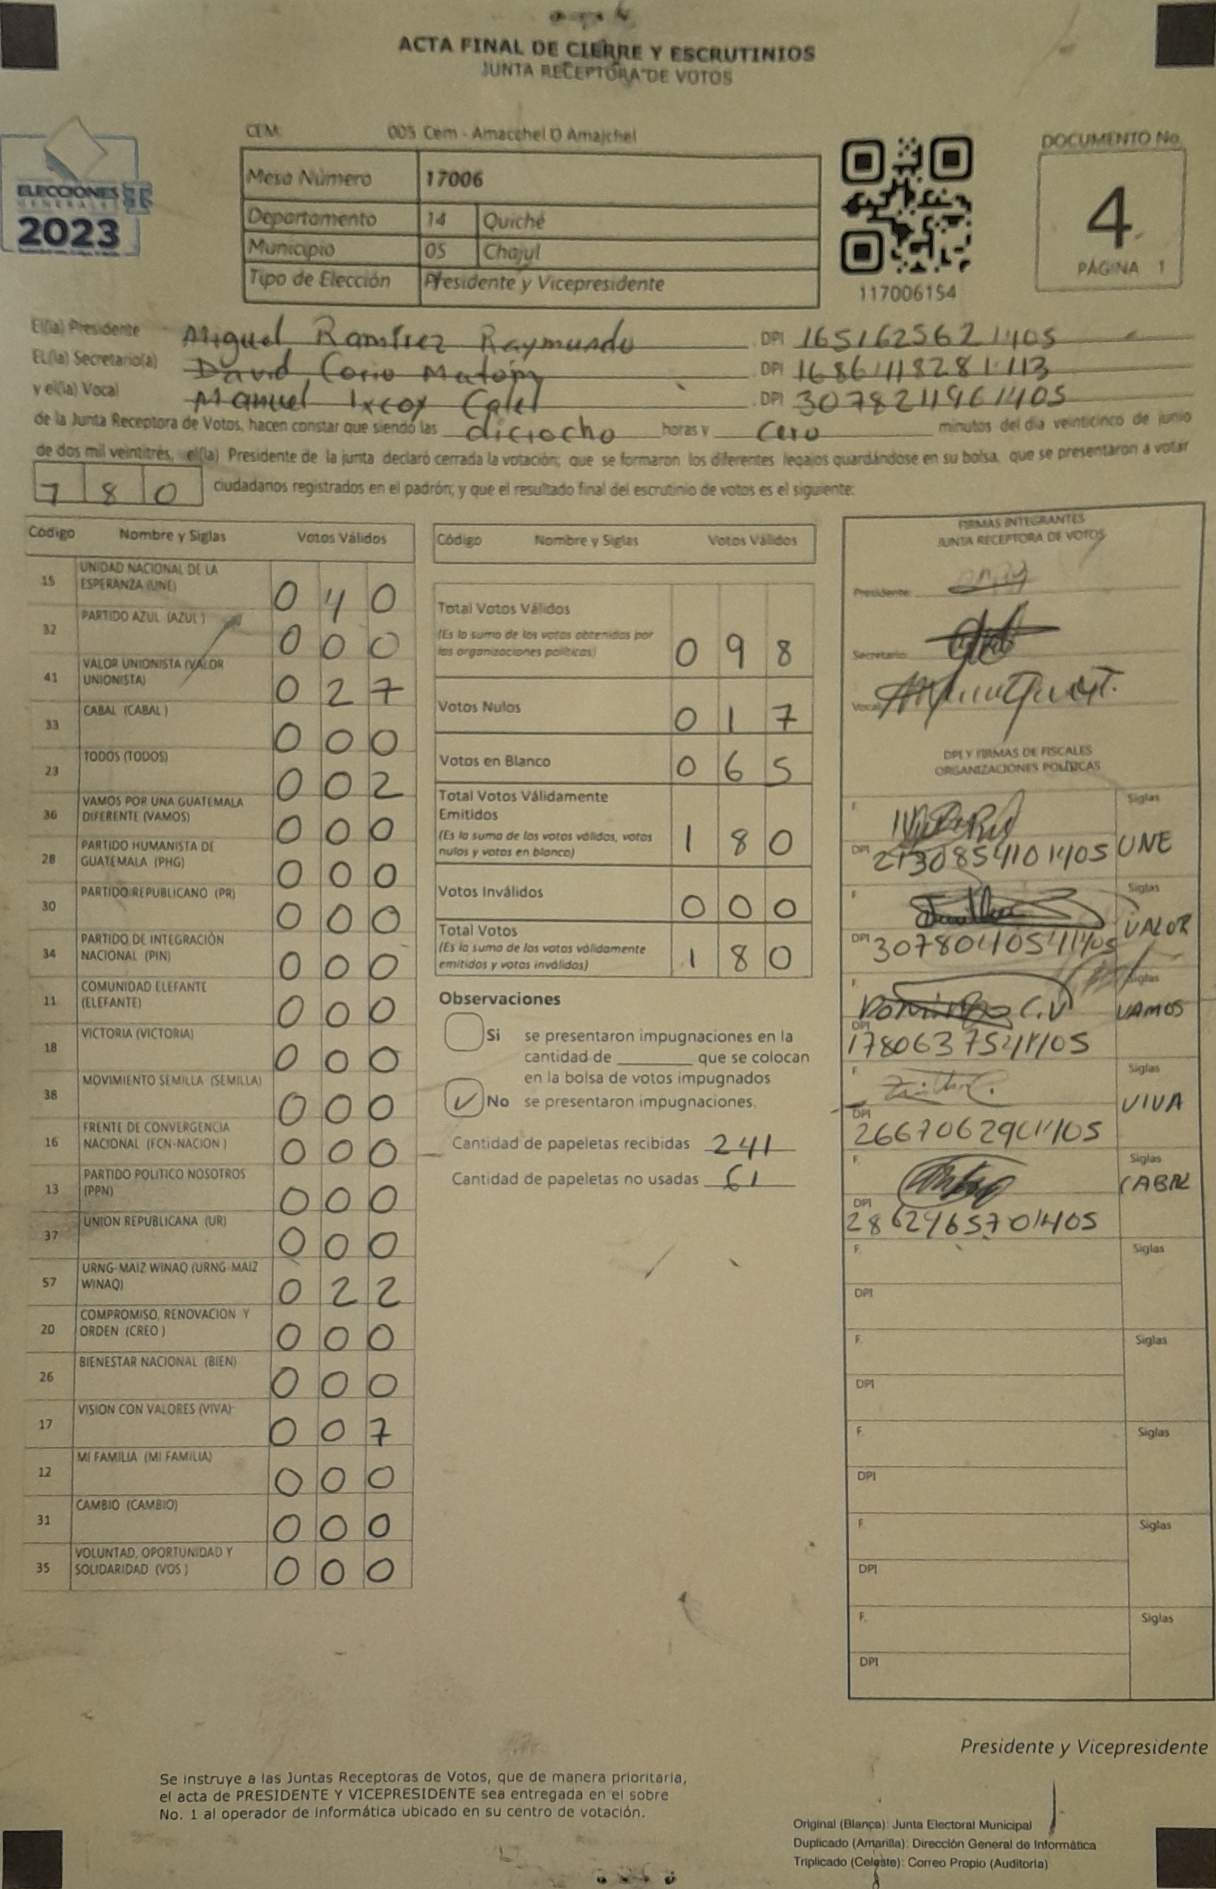 ACTA FINAL DE CIERRE Y ESCRUTINIOS
JUNTA RECEPTORA DE VOTOS
CEM: 005 Cem - Amacchel O Amajchel
ELECCIONES
GENERALES
2023
Mesa Número 17006
Departamento 14 Quiché
Municipio 05 Chajul
Tipo de Elección Presidente y Vicepresidente
117006154
DOCUMENTO No.
4
PÁGINA 1
El(la) Presidente Miguel Ramírez Raymundo . DPI 1651625621405
El(la) Secretario(a) David Corio Matóm . DPI 1686111828 1113
y el(la) Vocal Manuel Ixcoy Calel . DPI 3078211961405
de la Junta Receptora de Votos, hacen constar que siendo las diciocho horas y cero minutos del día veinticinco de junio
de dos mil veintitrés, el(la) Presidente de la junta declaró cerrada la votación; que se formaron los diferentes legajos guardándose en su bolsa, que se presentaron a votar
780 ciudadanos registrados en el padrón; y que el resultado final del escrutinio de votos es el siguiente:
Código Nombre y Siglas Votos Válidos
15 UNIDAD NACIONAL DE LA ESPERANZA (UNE) 0 4 0
32 PARTIDO AZUL (AZUL ) 0 0 0
41 VALOR UNIONISTA (VALOR UNIONISTA) 0 2 7
33 CABAL (CABAL ) 0 0 0
23 TODOS (TODOS) 0 0 2
36 VAMOS POR UNA GUATEMALA DIFERENTE (VAMOS) 0 0 0
28 PARTIDO HUMANISTA DE GUATEMALA (PHG) 0 0 0
30 PARTIDO REPUBLICANO (PR) 0 0 0
34 PARTIDO DE INTEGRACIÓN NACIONAL (PIN) 0 0 0
11 COMUNIDAD ELEFANTE (ELEFANTE) 0 0 0
18 VICTORIA (VICTORIA) 0 0 0
38 MOVIMIENTO SEMILLA (SEMILLA) 0 0 0
16 FRENTE DE CONVERGENCIA NACIONAL (FCN-NACION ) 0 0 0
13 PARTIDO POLITICO NOSOTROS (PPN) 0 0 0
37 UNION REPUBLICANA (UR) 0 0 0
57 URNG-MAIZ WINAQ (URNG-MAIZ WINAQ) 0 2 2
20 COMPROMISO, RENOVACION Y ORDEN (CREO ) 0 0 0
26 BIENESTAR NACIONAL (BIEN) 0 0 0
17 VISION CON VALORES (VIVA) 0 0 7
12 MI FAMILIA (MI FAMILIA) 0 0 0
31 CAMBIO (CAMBIO) 0 0 0
35 VOLUNTAD, OPORTUNIDAD Y SOLIDARIDAD (VOS ) 0 0 0
Código Nombre y Siglas Votos Válidos
Total Votos Válidos
(Es la suma de los votos obtenidos por
las organizaciones políticas) 0 9 8
Votos Nulos 0 1 7
Votos en Blanco 0 6 5
Total Votos Válidamente
Emitidos
(Es la suma de los votos válidos, votos
nulos y votos en blanco) 1 8 0
Votos Inválidos 0 0 0
Total Votos
(Es la suma de los votos válidamente
emitidos y votos inválidos) 1 8 0
Observaciones
Si se presentaron impugnaciones en la
cantidad de ________ que se colocan
en la bolsa de votos impugnados
No se presentaron impugnaciones.
Cantidad de papeletas recibidas 241
Cantidad de papeletas no usadas 61
FIRMAS INTEGRANTES
JUNTA RECEPTORA DE VOTOS
Presidente:
Secretario:
Vocal:
DPI Y FIRMAS DE FISCALES
ORGANIZACIONES POLÍTICAS
F. Siglas
DPI 2130854101405 UNE
F. Siglas
DPI VALOR
F. Siglas
DPI VAMOS
F. Siglas
DPI VIVA
F. Siglas
DPI 2862965701405 CABAL
F. Siglas
DPI
F. Siglas
DPI
F. Siglas
DPI
F. Siglas
DPI
F. Siglas
DPI
Presidente y Vicepresidente
Se instruye a las Juntas Receptoras de Votos, que de manera prioritaria,
el acta de PRESIDENTE Y VICEPRESIDENTE sea entregada en el sobre
No. 1 al operador de informática ubicado en su centro de votación.
Original (Blanca): Junta Electoral Municipal
Duplicado (Amarilla): Dirección General de Informática
Triplicado (Celeste): Correo Propio (Auditoría)